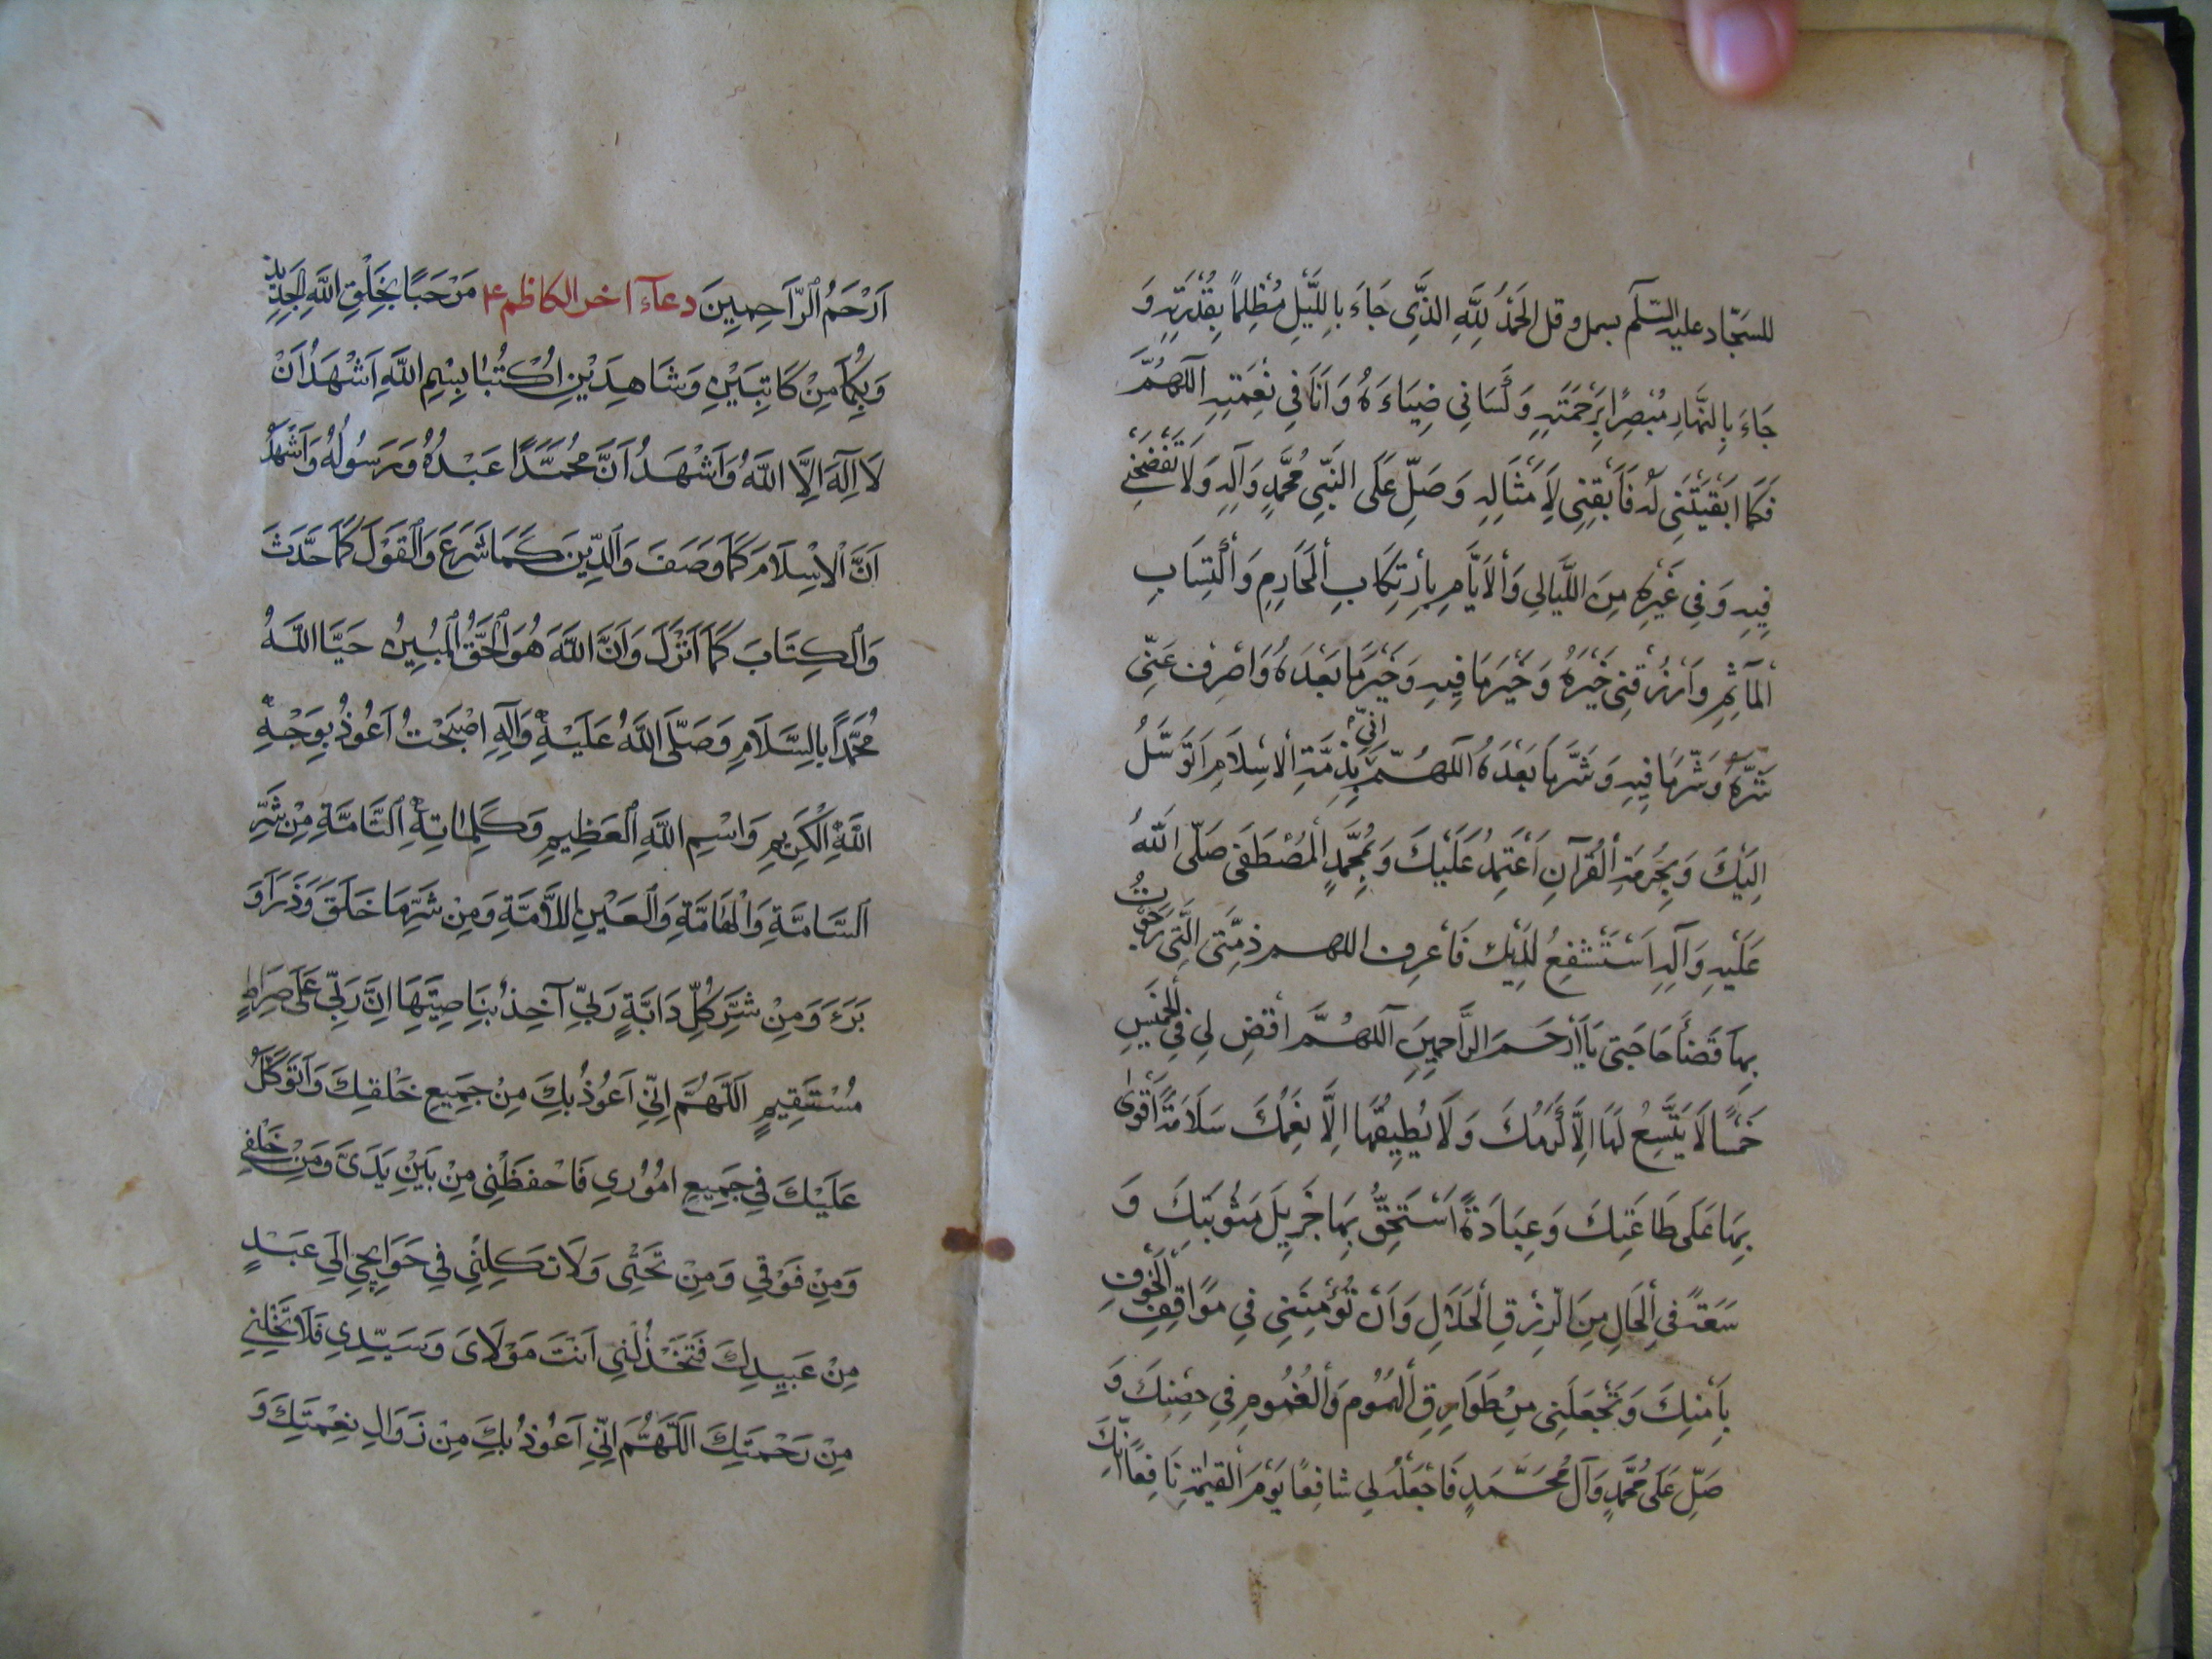 للسجّاد عليه السّلم بسمل وقل الحَمْدُ لِلَّهِ الَّذِى جَاءَ بِاللَّيْلِ مُظْلِماً بِقُدْرَتِهِ وَ
جَاءَ بِالنَّهَارِ مُبْصِرًا بِرَحْمَتِهِ وَكَسَانِى ضِيَاءَهُ وَاَنَا فِى نِعْمَتِهِ اَللَّهُمَّ
فَكَمَا اَبْقَيْتَنِى لَهُ فَأَبْقِنِى لِأَمْثَالِهِ وَصَلِّ عَلَى النَّبِىِّ مُحَمَّدٍ وَآلِهِ وَلَا تَفْضَحْنِى
فِيهِ وَفِى غَيْرِهِ مِنَ اللَّيَالِى وَالْأَيَّامِ بِارْتِكَابِ الْمَحَارِمِ وَاكْتِسَابِ
الْمَآثِمِ وَارْزُقْنِى خَيْرَهُ وَخَيْرَ مَا فِيهِ وَخَيْرَ مَا بَعْدَهُ وَاصْرِفْ عَنِّى
شَرَّهُ وَشَرَّ مَا فِيهِ وَشَرَّ مَا بَعْدَهُ اَللَّهُمَّ اِنِّى بِذِمَّةِ الْاِسْلَامِ اَتَوَسَّلُ
اِلَيْكَ وَبِحُرْمَةِ الْقُرْآنِ اَعْتَمِدُ عَلَيْكَ وَبِمُحَمَّدٍ الْمُصْطَفَى صَلَّى اللَّهُ
عَلَيْهِ وَآلِهِ اَسْتَشْفِعُ لَدَيْكَ فَاعْرِفِ اللهم ذِمَّتِىَ الَّتِى رَجَوْتُ
بِهَا قَضَاءَ حَاجَتِى يَا اَرْحَمَ الرَّاحِمِينَ اَللَّهُمَّ اقْضِ لِى فِى الْخَمِيسِ
خَمْسًا لَا يَتَّسِعُ لَهَا اِلَّا كَرَمُكَ وَلَا يُطِيقُهَا اِلَّا نِعَمُكَ سَلَامَةً اَقْوَىٰ
بِهَا عَلَى طَاعَتِكَ وَعِبَادَةً اَسْتَحِقُّ بِهَا جَزِيلَ مَثُوبَتِكَ وَ
سَعَةً فِى الْحَالِ مِنَ الرِّزْقِ الْحَلَالِ وَاَنْ تُؤْمِنَنِى فِى مَوَاقِفِ الْخَوْفِ
بِأَمْنِكَ وَتَجْعَلَنِى مِنْ طَوَارِقِ الْهُمُومِ وَالْغُمُومِ فِى حِصْنِكَ وَ
صَلِّ عَلَى مُحَمَّدٍ وَآلِ مُحَمَّدٍ فَاجْعَلْهُ لِى شافِعًا يَوْمَ الْقِيٰمَةِ نَافِعاً اِنَّكَ
اَرْحَمُ الرَّاحِمِينَ دعآء اخر الكاظم ع مَرْحَبًا بِخَلْقِ اللَّهِ الْجَدِيدِ
وَبِكُمَا مِنْ كَاتِبَيْنِ وَشَاهِدَيْنِ اُكْتُبَا بِسْمِ اللَّهِ اَشْهَدُ اَنْ
لَا اِلَهَ اِلَّا اللَّهُ وَاَشْهَدُ اَنَّ مُحَمَّدًا عَبْدُهُ وَرَسُولُهُ وَاَشْهَدُ
اَنَّ الْاِسْلَامَ كَمَا وَصَفَ وَالدِّينَ كَمَا شَرَعَ وَالْقَوْلَ كَمَا حَدَّثَ
وَالْكِتَابَ كَمَا اَنْزَلَ وَاَنَّ اللَّهَ هُوَ الْحَقُّ الْمُبِينُ حَيَّا اللَّهُ
مُحَمَّداً بِالسَّلَامِ وَصَلَّى اللَّهُ عَلَيْهِ وَآلِهِ اَصْبَحْتُ اَعُوذُ بِوَجْهِ
اللَّهِ الْكَرِيمِ وَاسْمِ اللَّهِ الْعَظِيمِ وَكَلِمَاتِهِ التَّامَّةِ مِنْ شَرِّ
السَّامَّةِ وَالْهَامَّةِ وَالْعَيْنِ اللَّامَّةِ وَمِنْ شَرِّ مَا خَلَقَ وَذَرَأَ وَ
بَرَءَ وَمِنْ شَرِّ كُلِّ دَابَّةٍ رَبِّى آخِذٌ بِنَاصِيَتِهَا اِنَّ رَبِّى عَلَى صِرَاطٍ
مُسْتَقِيمٍ اَللَّهُمَّ اِنِّى اَعُوذُ بِكَ مِنْ جَمِيعِ خَلْقِكَ وَاَتَوَكَّلُ
عَلَيْكَ فِى جَمِيعِ اُمُورِى فَاحْفَظْنِى مِنْ بَيْنِ يَدَىَّ وَمِنْ خَلْفِى
وَمِنْ فَوْقِى وَمِنْ تَحْتِى وَلَا تَكِلْنِى فِى حَوَايِجِى اِلَى عَبْدٍ
مِنْ عَبِيدِكَ فَتَخْذُلَنِى اَنْتَ مَوْلَاىَ وَسَيِّدِى فَلَا تُخَلِّنِى
مِنْ رَحْمَتِكَ اَللَّهُمَّ اِنِّى اَعُوذُ بِكَ مِنْ زَوَالِ نِعْمَتِكَ وَ